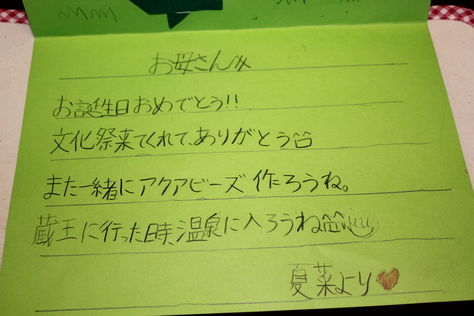 お母さんへ
お誕生日おめでとう!!
文化祭来てくれて、ありがとう
また一緒にアクアビーズ作ろうね。
蔵王に行った時、温泉に入ろうね
夏菜より